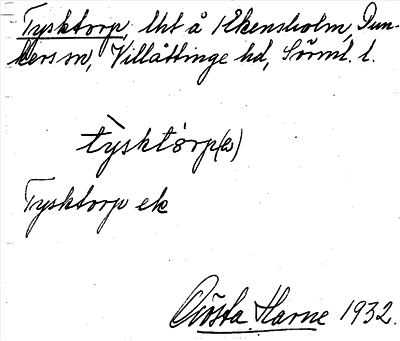 Tysktorp, lht å Åkensholm, Dun-
kers sn, Villåttinge hd, Sörml. l.
týsktòrp(es)
Tysktorp ek
Gösta Harne 1932.